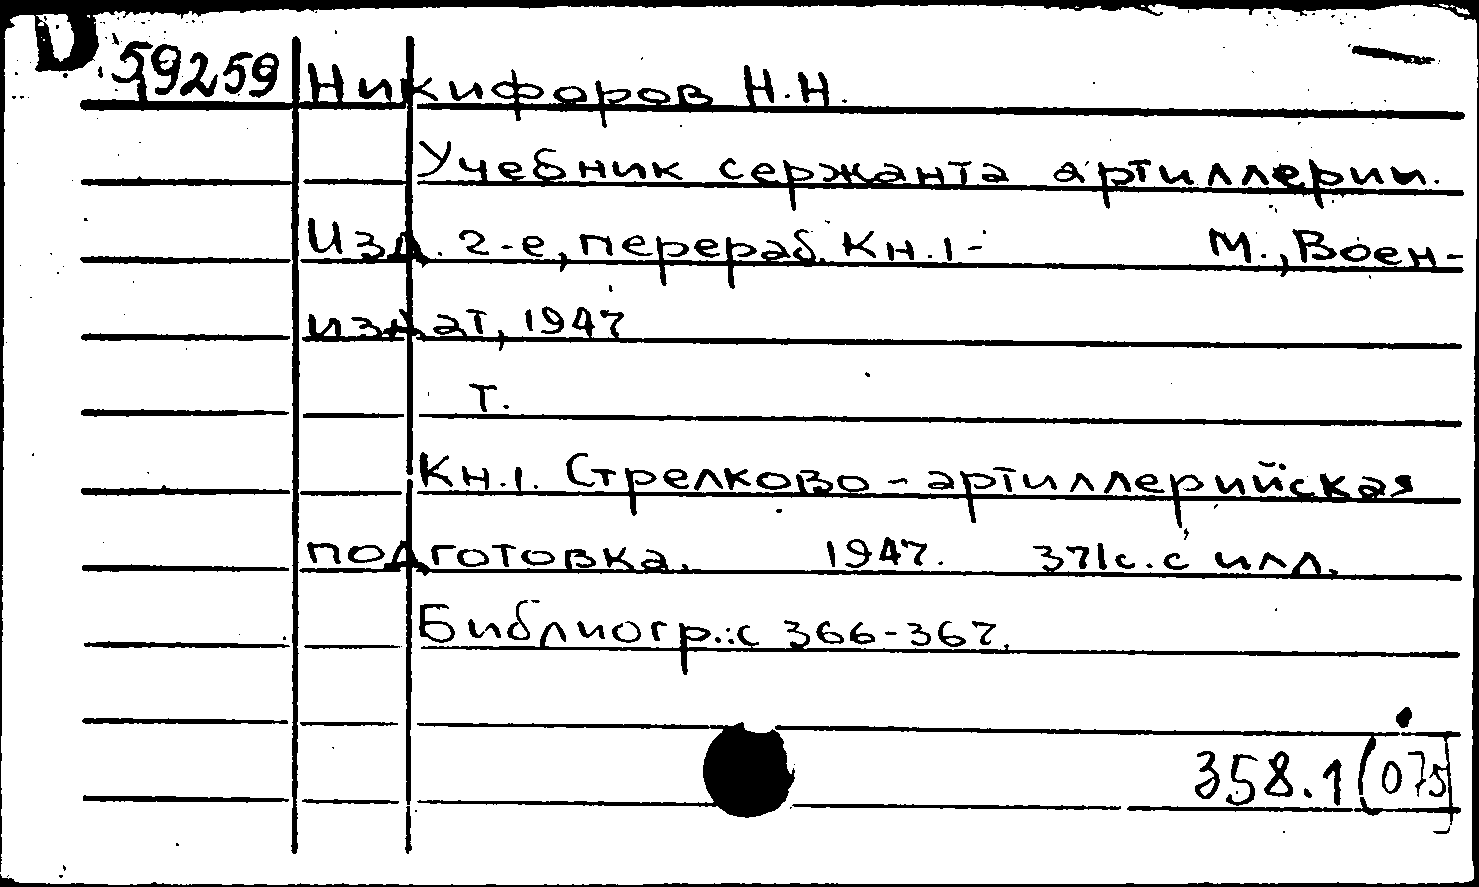 D 59259 Никифоров Н.Н.
Учебник сержанта артиллерии.
Изд. 2-е, перераб. Кн.1- М., Воен-
издат, 1947
т.
Кн.1. Стрелково-артиллерийская
подготовка. 1947. 371с. с илл.
Библиогр.: с 366-367.
358.1(075]